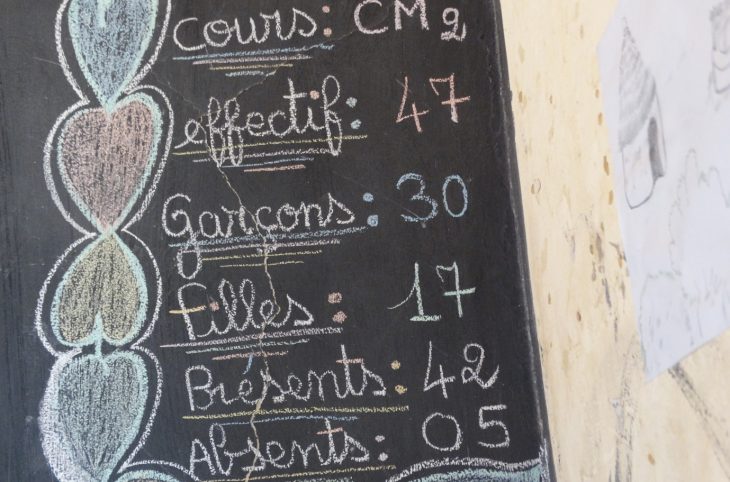 Cours: CM2
effectif: 47
Garçons: 30
Filles: 17
Présents: 42
Absents: 05